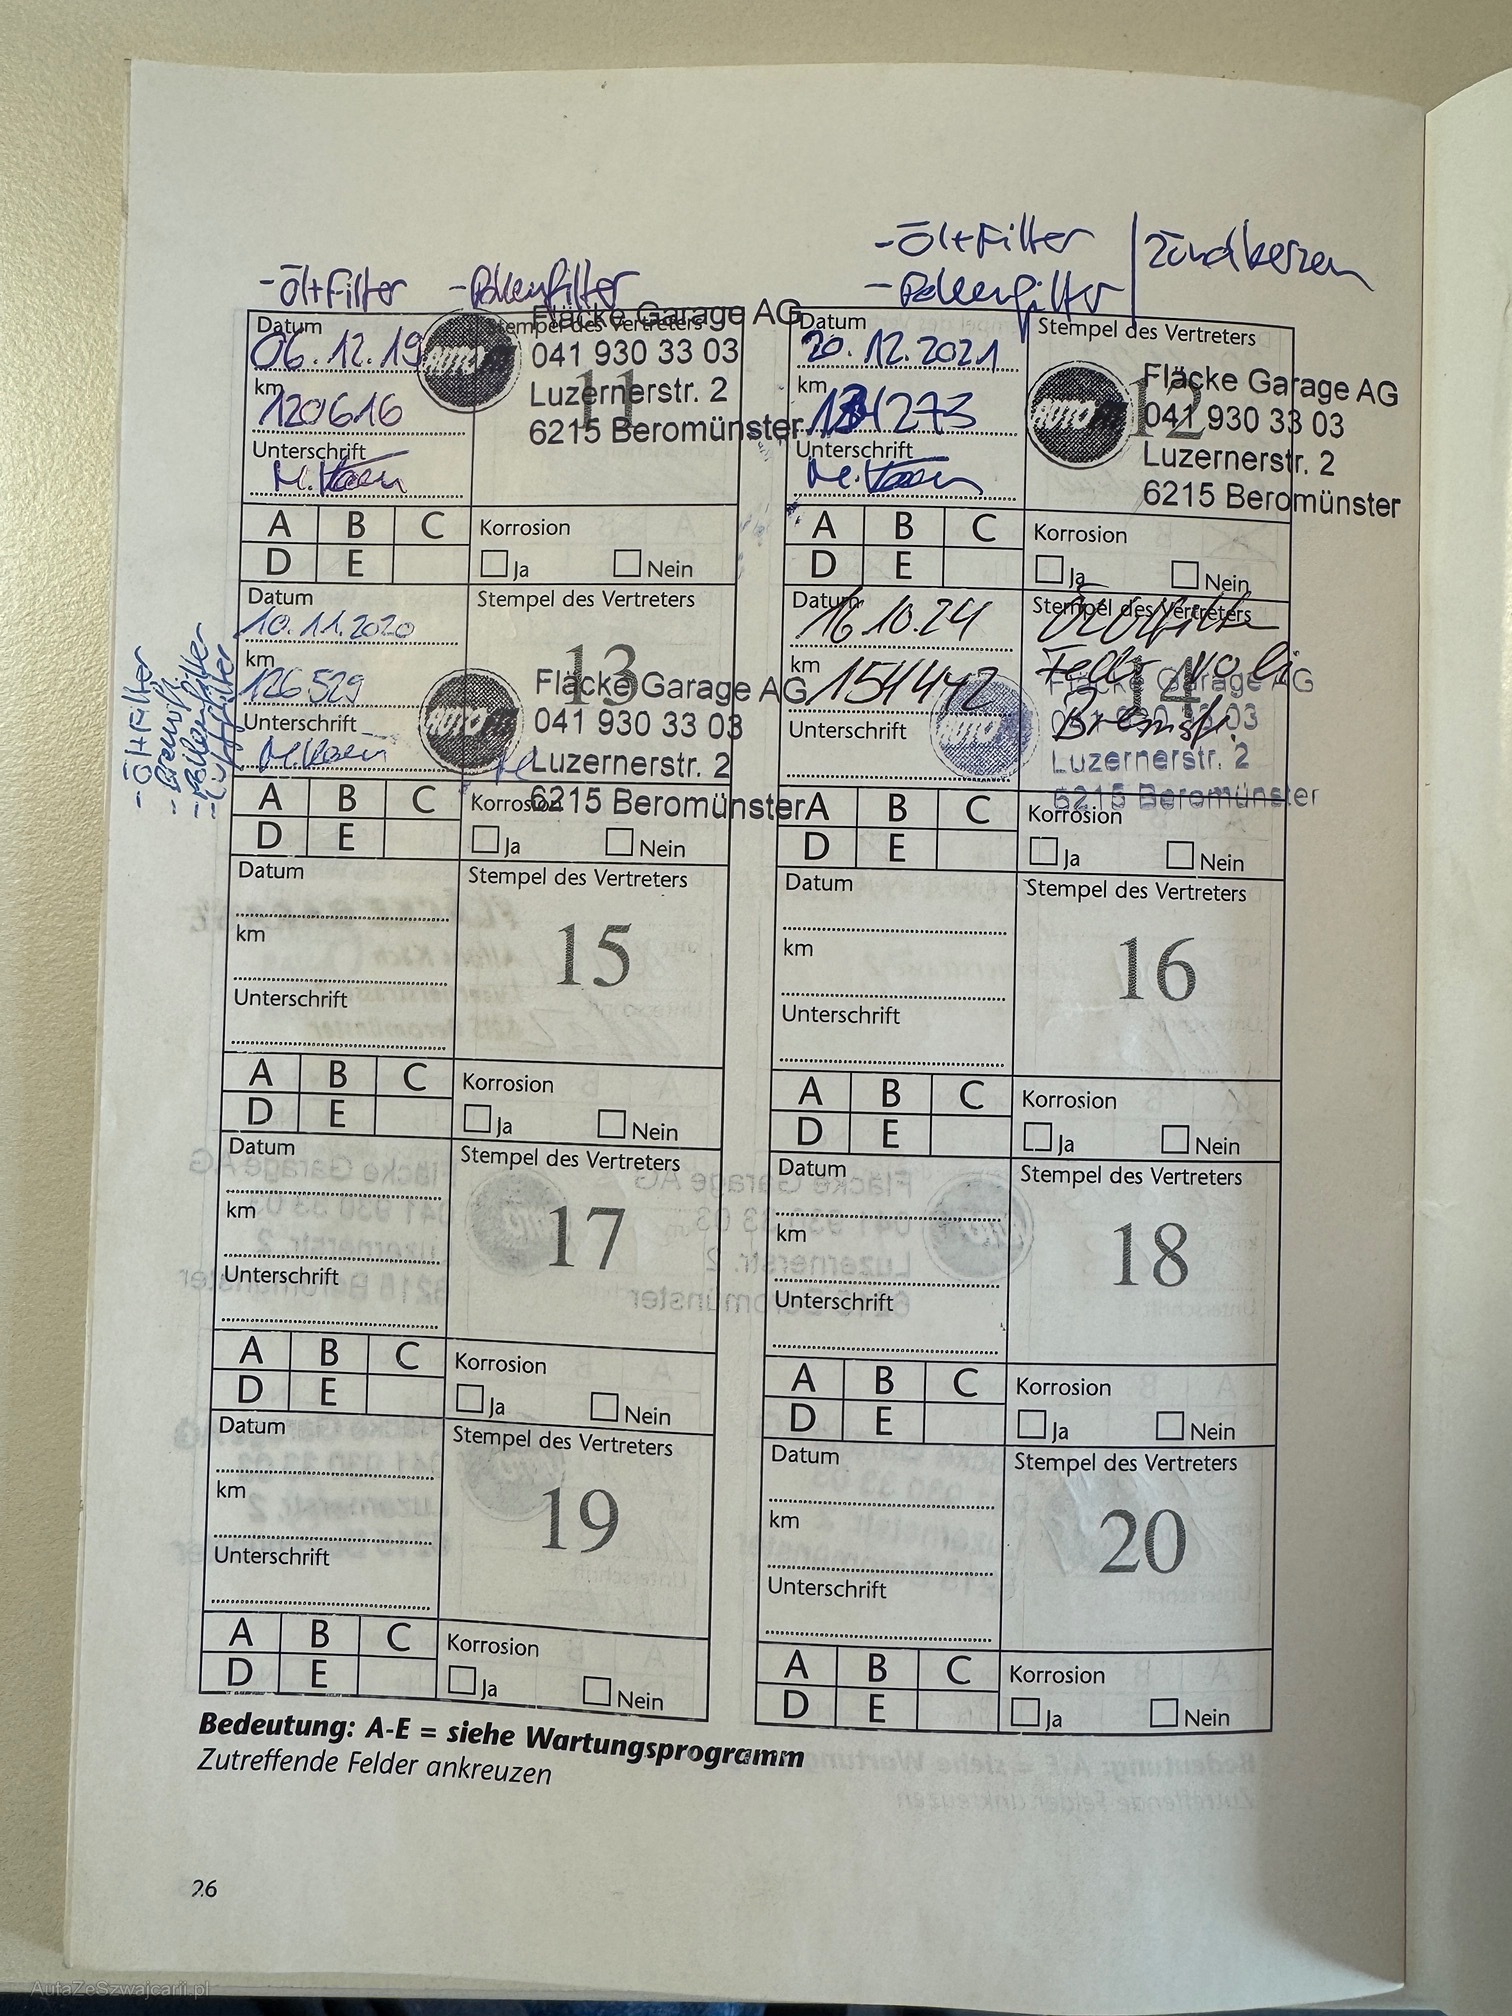 -Öl+Filter
-Pollenfilter
-Öl+Filter
-Pollenfilter
Zündkerzen
Datum
06.12.19
km
120616
Unterschrift
Stempel des Vertreters
11
AUTO
Fläcke Garage AG
041 930 33 03
Luzernerstr. 2
6215 Beromünster
A B C
D E
Korrosion
Ja Nein
Datum
20.12.2021
km
134273
Unterschrift
Stempel des Vertreters
12
AUTO
Fläcke Garage AG
041 930 33 03
Luzernerstr. 2
6215 Beromünster
A B C
D E
Korrosion
Ja Nein
-Öl+Filter
-Pollenfilter
-Luftfilter
Datum
10.11.2020
km
126529
Unterschrift
Stempel des Vertreters
13
AUTO
Fläcke Garage AG
041 930 33 03
Luzernerstr. 2
6215 Beromünster
A B C
D E
Korrosion
Ja Nein
Datum
16.10.24
km
154442
Unterschrift
Stempel des Vertreters
14
AUTO
Fläcke Garage AG
041 930 33 03
Luzernerstr. 2
6215 Beromünster
A B C
D E
Korrosion
Ja Nein
Datum
km
Unterschrift
Stempel des Vertreters
15
A B C
D E
Korrosion
Ja Nein
Datum
km
Unterschrift
Stempel des Vertreters
16
A B C
D E
Korrosion
Ja Nein
Datum
km
Unterschrift
Stempel des Vertreters
17
A B C
D E
Korrosion
Ja Nein
Datum
km
Unterschrift
Stempel des Vertreters
18
A B C
D E
Korrosion
Ja Nein
Datum
km
Unterschrift
Stempel des Vertreters
19
A B C
D E
Korrosion
Ja Nein
Datum
km
Unterschrift
Stempel des Vertreters
20
A B C
D E
Korrosion
Ja Nein
Bedeutung: A-E = siehe Wartungsprogramm
Zutreffende Felder ankreuzen
26
AutaZeSzwajcarii.pl